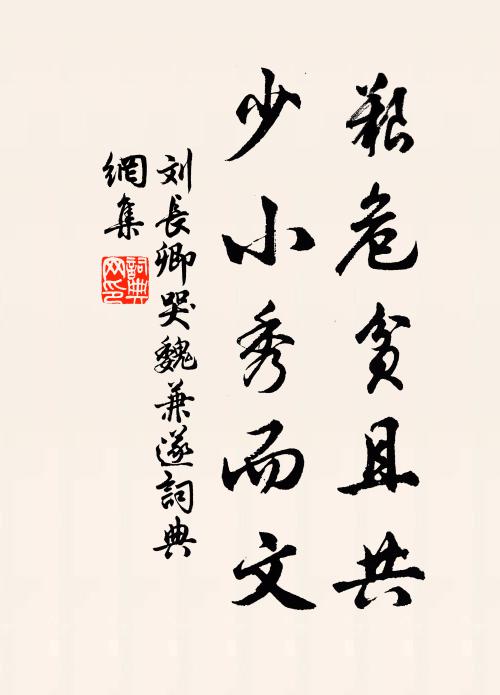 艱危貧且共
少小秀而文
刘長卿哭魏兼遂詞典
網集
詞典網印